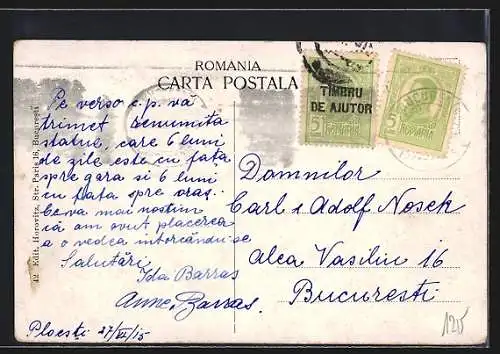 ROMANIA
CARTA POSTALA
TIMBRU
DE AJUTOR
5 ROMANIA
5 ROMANIA
Pe verso c.p. va
trimet renumita
statue, care 6 luni
de zile este cu fața
spre gara si 6 luni
cu fata spre oraș.
Ceva mai nostim
că am avut placerea
a o vedea intorcându-se
Salutări
Ida Barras
Anne Barras
Ploesti 27/VI/15
Domnilor
Carl & Adolf Nosek
Alea Vasiliu 16
Bucuresti
42 Edit. Horovitz, Str. Paris 18, Bucuresti